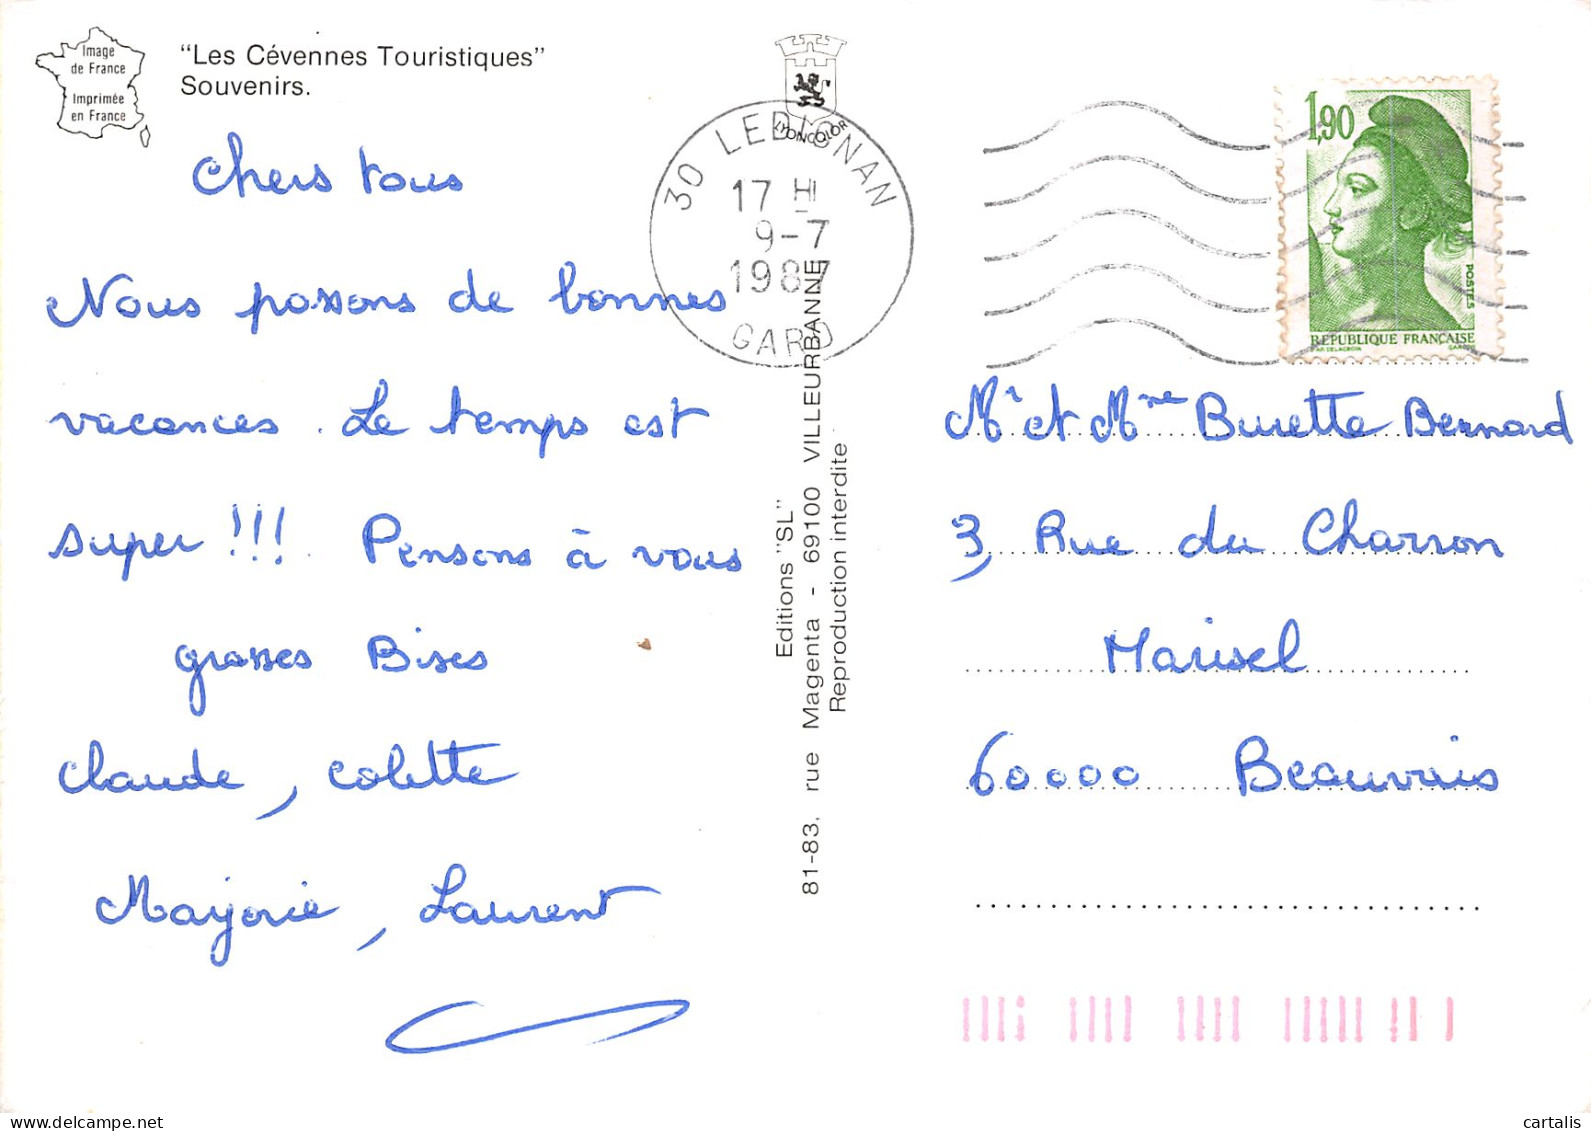 Image
de France
Imprimée
en France
"Les Cévennes Touristiques"
Souvenirs.
LYONCOLOR
30 LEDIGNAN
17 H
9-7
1987
GARD
1,90
POSTES
REPUBLIQUE FRANÇAISE
Chers tous
Nous passons de bonnes
vacances. Le temps est
super !!! Pensons à vous
grosses Bises
Claude, Colette
Marjorie, Laurent
Editions "SL"
81-83, rue Magenta - 69100 VILLEURBANNE
Reproduction interdite
Mr et Mme Burette Bernard
3, Rue du Charron
Marisel
60000 Beauvais
cartalis